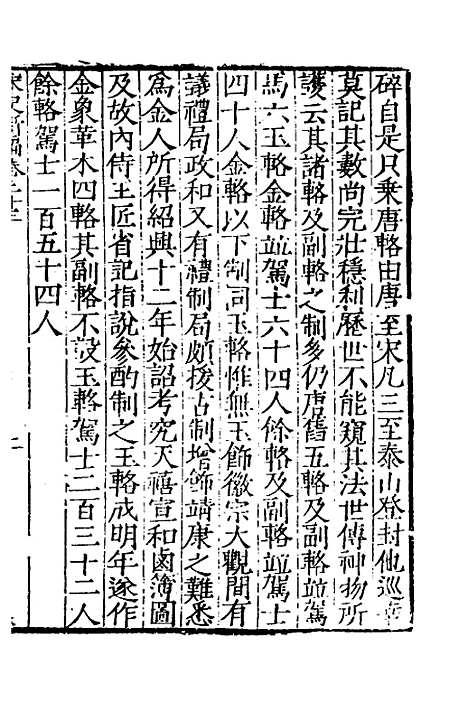 碎自是只乗唐輅由唐至宋凡三至泰山登封他巡幸
莫記其數尚完壮穏利歷世不能窺其法世傳神物所
護云其諸輅及副輅之制多仍唐舊五輅及副輅並駕
馬六玉輅金輅並駕士六十四人餘輅及副輅並駕士
四十人金輅以下制同玉輅惟無玉飾徽宗大觀間有
議禮局政和又有禮制局頗援古制增飾靖康之難悉
爲金人所得紹興十二年始詔考究天禧宣和鹵簿圖
及故內侍工匠省記指說參酌制之玉輅成明年遂作
金象革木四輅其副輅不設玉輅駕士二百三十二人
餘輅駕士一百五十四人
宋史新編卷之三十三